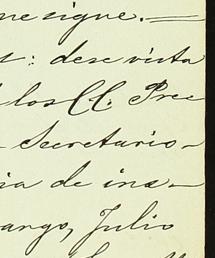 ne sigue. —
: dese vista
los CC. Pre
Secretario-
ia de ins-
ango, Julio